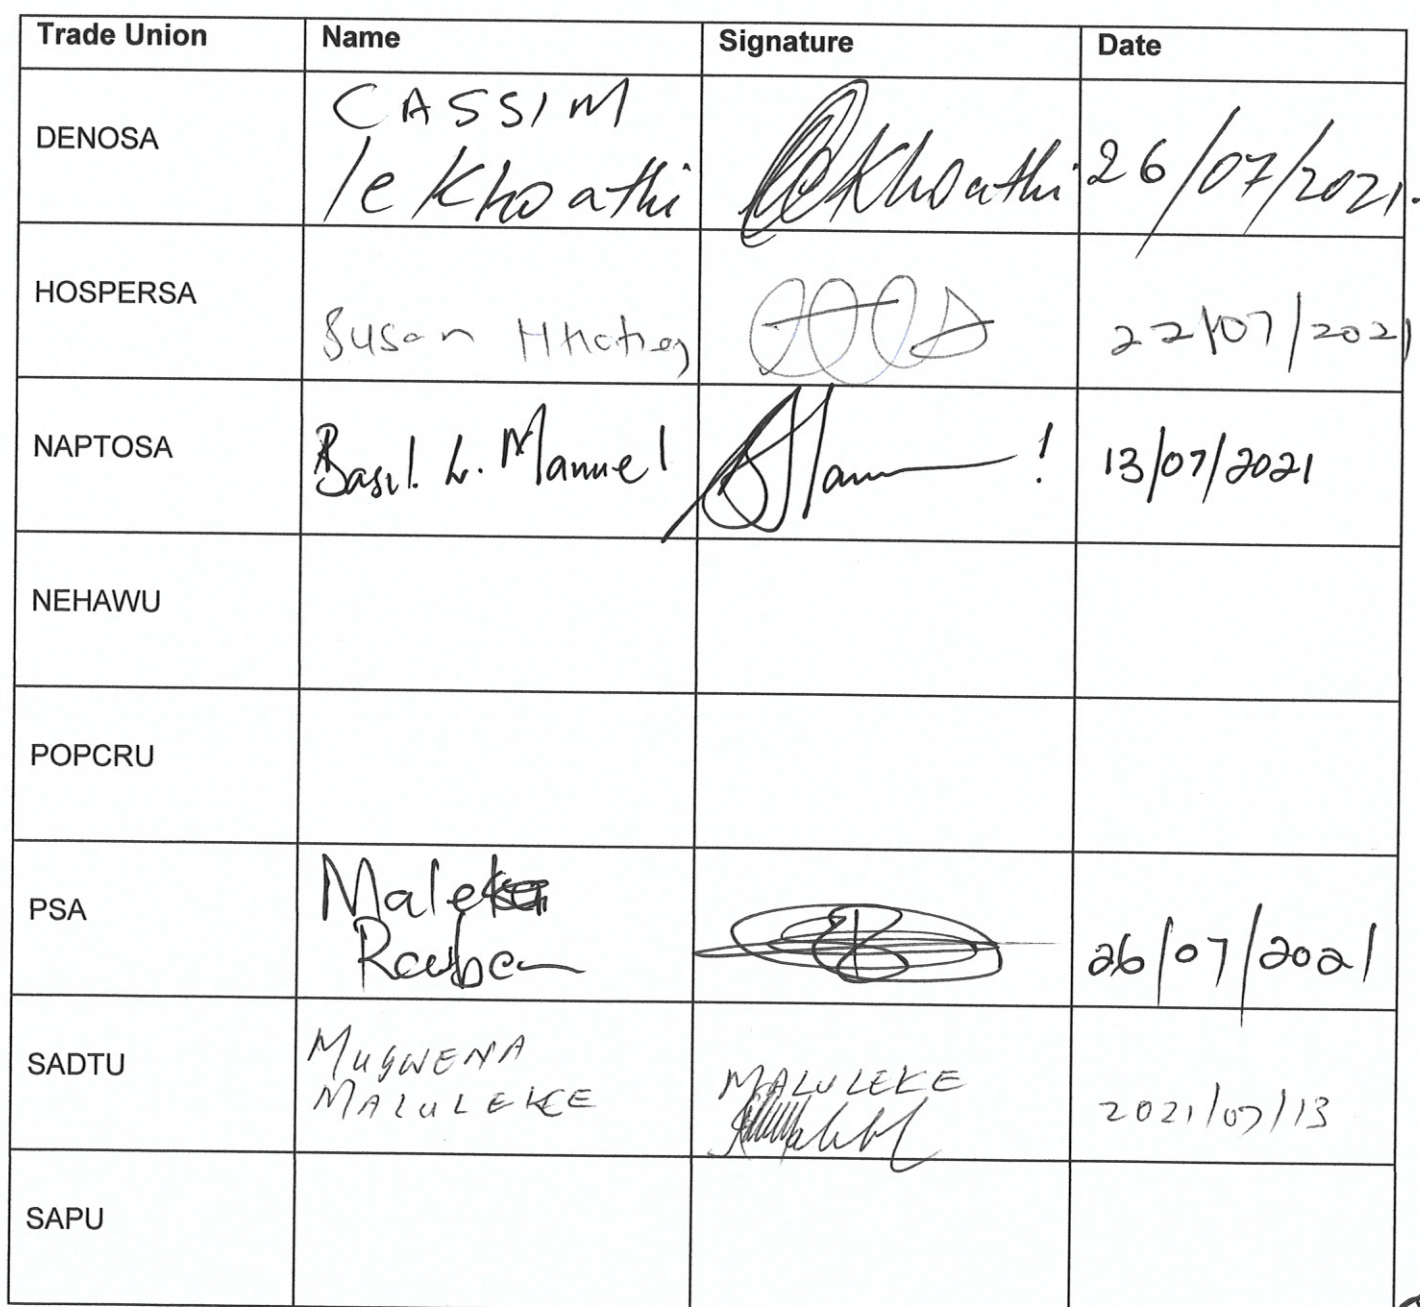 Trade Union Name Signature Date
DENOSA
CASSIM
lekhoathi
lekhoathi
26/07/2021.
HOSPERSA
Susan
22/07/2021
NAPTOSA
Basil L. Manuel
13/07/2021
NEHAWU
POPCRU
PSA
Maleka
Reuben
26/07/2021
SADTU
MUGWENA
MALULEKE
MALULEKE
2021/07/13
SAPU